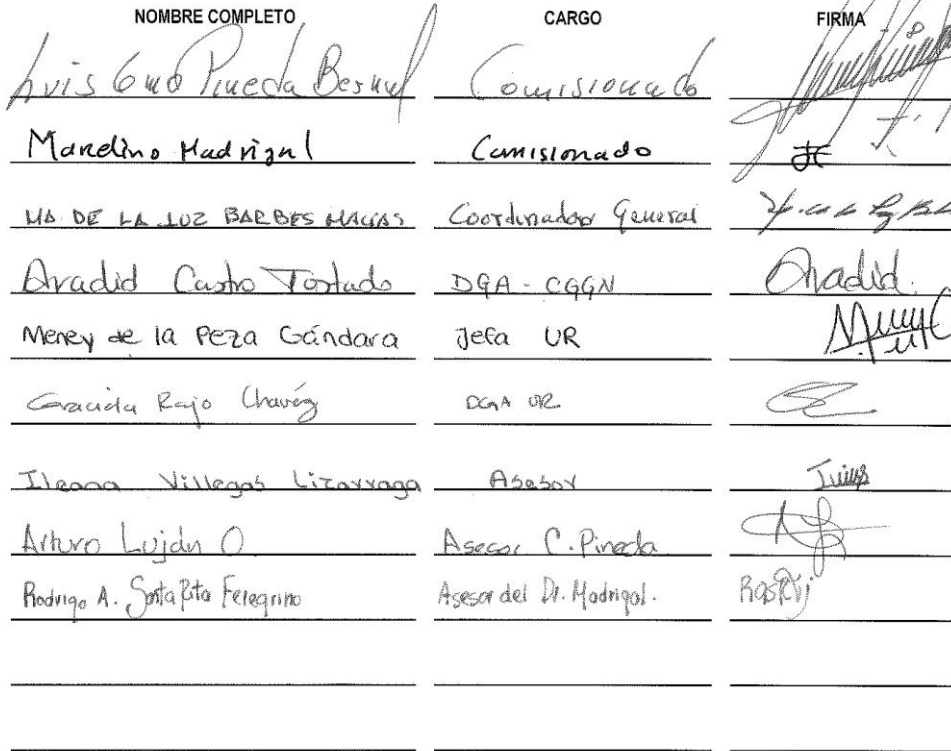 NOMBRE COMPLETO CARGO FIRMA
Luis Gmo Pineda Bernal Comisionado
Marcelino Madrigal Comisionado
MA. DE LA LUZ BARBES MACIAS Coordinador General
Aradid Castro Tostado DGA - CGGN Aradid.
Merey de la Peza Gándara Jefa UR
Graciela Rojo Chávez DGA UR
Ileana Villegas Lizarraga Asesor
Arturo Luján O. Asesor C. Pineda
Rodrigo A. Santa Rita Feregrino Asesor del Dr. Madrigal.